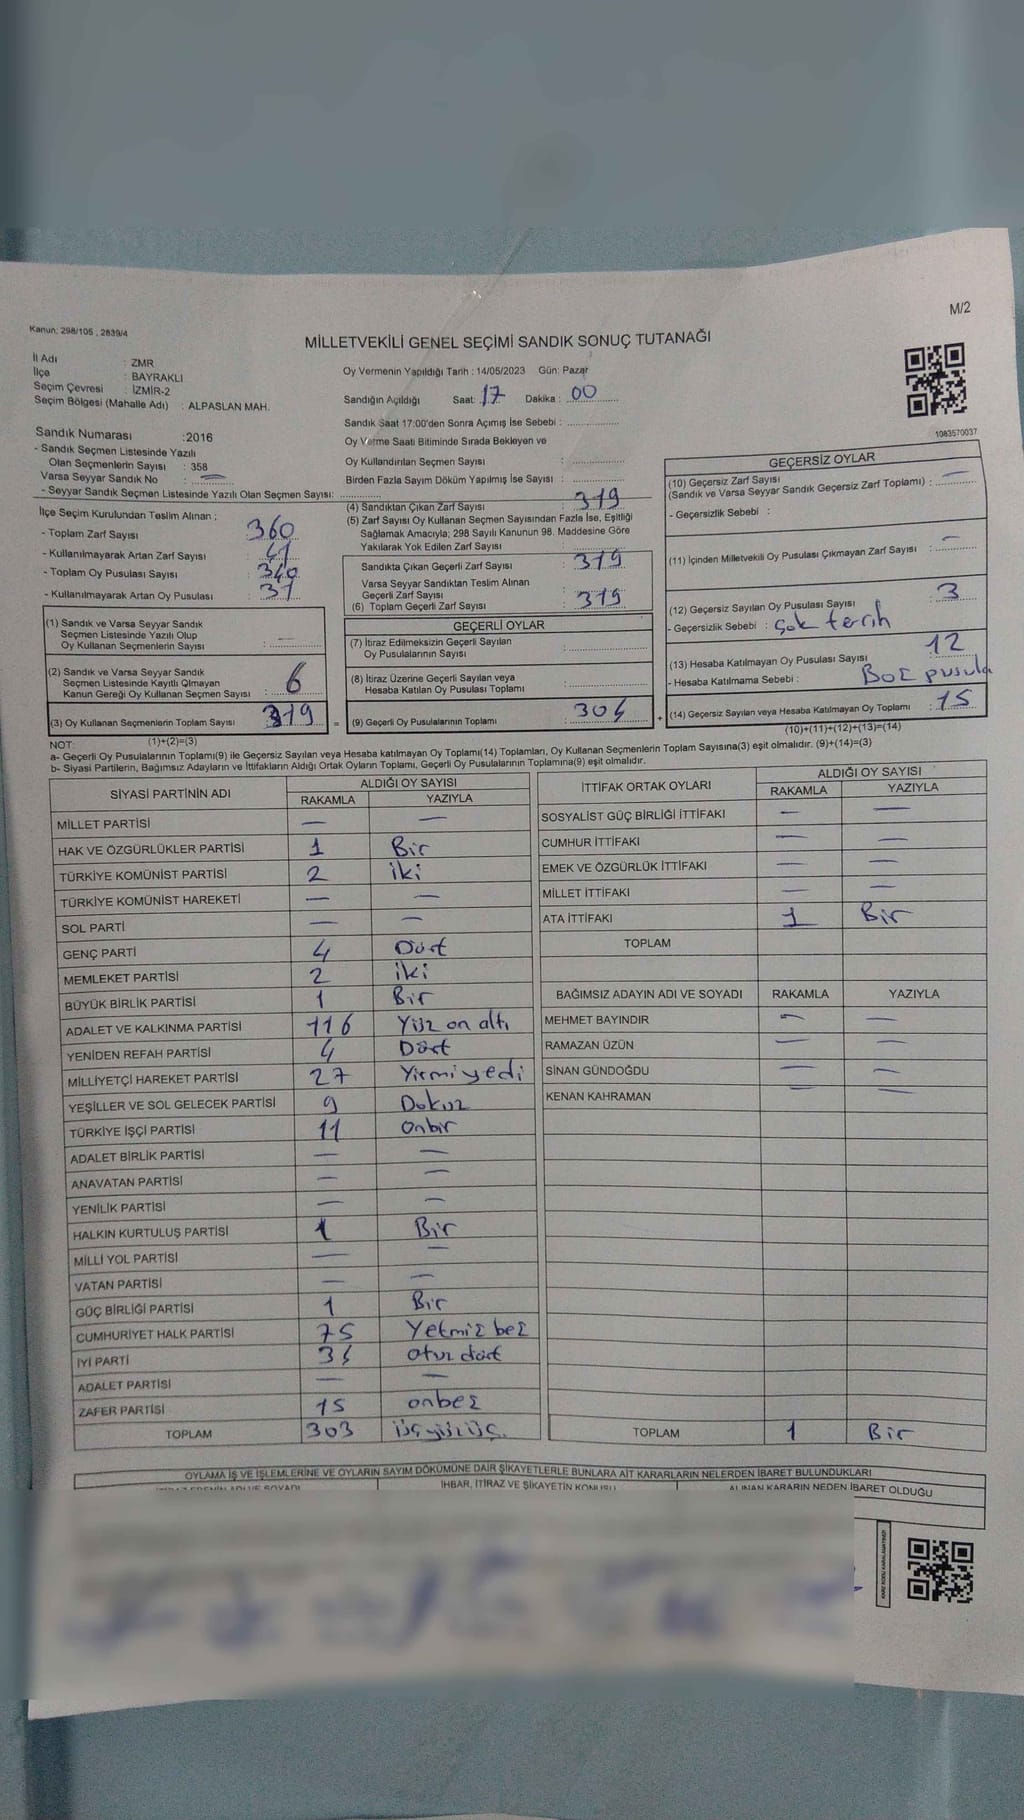 M/2
Kanun: 298/105 , 2839/4
MİLLETVEKİLİ GENEL SEÇİMİ SANDIK SONUÇ TUTANAĞI
İl Adı : ZMR
İlçe : BAYRAKLI
Seçim Çevresi : İZMİR-2
Seçim Bölgesi (Mahalle Adı) : ALPASLAN MAH.
Oy Vermenin Yapıldığı Tarih : 14/05/2023 Gün: Pazar
Sandığın Açıldığı Saat: 17 Dakika : 00
Sandık Saat 17:00'den Sonra Açımış İse Sebebi :
Oy Verme Saati Bitiminde Sırada Bekleyen ve
Oy Kullandırılan Seçmen Sayısı :
Birden Fazla Sayım Döküm Yapılmış İse Sayısı :
1083570037
Sandık Numarası :2016
- Sandık Seçmen Listesinde Yazılı
Olan Seçmenlerin Sayısı : 358
Varsa Seyyar Sandık No : —
- Seyyar Sandık Seçmen Listesinde Yazılı Olan Seçmen Sayısı:
İlçe Seçim Kurulundan Teslim Alınan :
- Toplam Zarf Sayısı : 360
- Kullanılmayarak Artan Zarf Sayısı : 41
- Toplam Oy Pusulası Sayısı : 340
- Kullanılmayarak Artan Oy Pusulası : 31
(1) Sandık ve Varsa Seyyar Sandık
Seçmen Listesinde Yazılı Olup
Oy Kullanan Seçmenlerin Sayısı : —
(2) Sandık ve Varsa Seyyar Sandık
Seçmen Listesinde Kayıtlı Olmayan
Kanun Gereği Oy Kullanan Seçmen Sayısı : 6
(3) Oy Kullanan Seçmenlerin Toplam Sayısı : 319
(1)+(2)=(3)
(4) Sandıktan Çıkan Zarf Sayısı : 319
(5) Zarf Sayısı Oy Kullanan Seçmen Sayısından Fazla İse, Eşitliği
Sağlamak Amacıyla; 298 Sayılı Kanunun 98. Maddesine Göre
Yakılarak Yok Edilen Zarf Sayısı :
Sandıkta Çıkan Geçerli Zarf Sayısı : 319
Varsa Seyyar Sandıktan Teslim Alınan
Geçerli Zarf Sayısı :
(6) Toplam Geçerli Zarf Sayısı : 319
GEÇERLİ OYLAR
(7) İtiraz Edilmeksizin Geçerli Sayılan
Oy Pusulalarının Sayısı :
(8) İtiraz Üzerine Geçerli Sayılan veya
Hesaba Katılan Oy Pusulası Toplamı :
= (9) Geçerli Oy Pusulalarının Toplamı : 304
GEÇERSİZ OYLAR
(10) Geçersiz Zarf Sayısı
(Sandık ve Varsa Seyyar Sandık Geçersiz Zarf Toplamı) : —
- Geçersizlik Sebebi :
(11) İçinden Milletvekili Oy Pusulası Çıkmayan Zarf Sayısı : —
(12) Geçersiz Sayılan Oy Pusulası Sayısı : 3
- Geçersizlik Sebebi : Çok tercih
(13) Hesaba Katılmayan Oy Pusulası Sayısı : 12
- Hesaba Katılmama Sebebi : Boş pusula
+ (14) Geçersiz Sayılan veya Hesaba Katılmayan Oy Toplamı : 15
(10)+(11)+(12)+(13)=(14)
NOT:
a- Geçerli Oy Pusulalarının Toplamı(9) ile Geçersiz Sayılan veya Hesaba katılmayan Oy Toplamı(14) Toplamları, Oy Kullanan Seçmenlerin Toplam Sayısına(3) eşit olmalıdır. (9)+(14)=(3)
b- Siyasi Partilerin, Bağımsız Adayların ve İttifakların Aldığı Ortak Oyların Toplamı, Geçerli Oy Pusulalarının Toplamına(9) eşit olmalıdır.
SİYASİ PARTİNİN ADI ALDIĞI OY SAYISI
RAKAMLA YAZIYLA
MİLLET PARTİSİ — —
HAK VE ÖZGÜRLÜKLER PARTİSİ 1 Bir
TÜRKİYE KOMÜNİST PARTİSİ 2 iki
TÜRKİYE KOMÜNİST HAREKETİ — —
SOL PARTİ — —
GENÇ PARTİ 4 Dört
MEMLEKET PARTİSİ 2 iki
BÜYÜK BİRLİK PARTİSİ 1 Bir
ADALET VE KALKINMA PARTİSİ 116 Yüz on altı
YENİDEN REFAH PARTİSİ 4 Dört
MİLLİYETÇİ HAREKET PARTİSİ 27 Yirmi yedi
YEŞİLLER VE SOL GELECEK PARTİSİ 9 Dokuz
TÜRKİYE İŞÇİ PARTİSİ 11 onbir
ADALET BİRLİK PARTİSİ — —
ANAVATAN PARTİSİ — —
YENİLİK PARTİSİ — —
HALKIN KURTULUŞ PARTİSİ 1 Bir
MİLLİ YOL PARTİSİ — —
VATAN PARTİSİ — —
GÜÇ BİRLİĞİ PARTİSİ 1 Bir
CUMHURİYET HALK PARTİSİ 75 Yetmiş beş
İYİ PARTİ 34 otuz dört
ADALET PARTİSİ — —
ZAFER PARTİSİ 15 onbeş
TOPLAM 303 üçyüzüç.
İTTİFAK ORTAK OYLARI ALDIĞI OY SAYISI
RAKAMLA YAZIYLA
SOSYALİST GÜÇ BİRLİĞİ İTTİFAKI — —
CUMHUR İTTİFAKI — —
EMEK VE ÖZGÜRLÜK İTTİFAKI — —
MİLLET İTTİFAKI — —
ATA İTTİFAKI 1 Bir
TOPLAM
BAĞIMSIZ ADAYIN ADI VE SOYADI RAKAMLA YAZIYLA
MEHMET BAYINDIR — —
RAMAZAN ÜZÜN — —
SİNAN GÜNDOĞDU — —
KENAN KAHRAMAN — —
TOPLAM 1 Bir
OYLAMA İŞ VE İŞLEMLERİNE VE OYLARIN SAYIM DÖKÜMÜNE DAİR ŞİKAYETLERLE BUNLARA AİT KARARLARIN NELERDEN İBARET BULUNDUKLARI
İHBAR, İTİRAZ VE ŞİKAYETİN KONUSU
ALINAN KARARIN NEDEN İBARET OLDUĞU